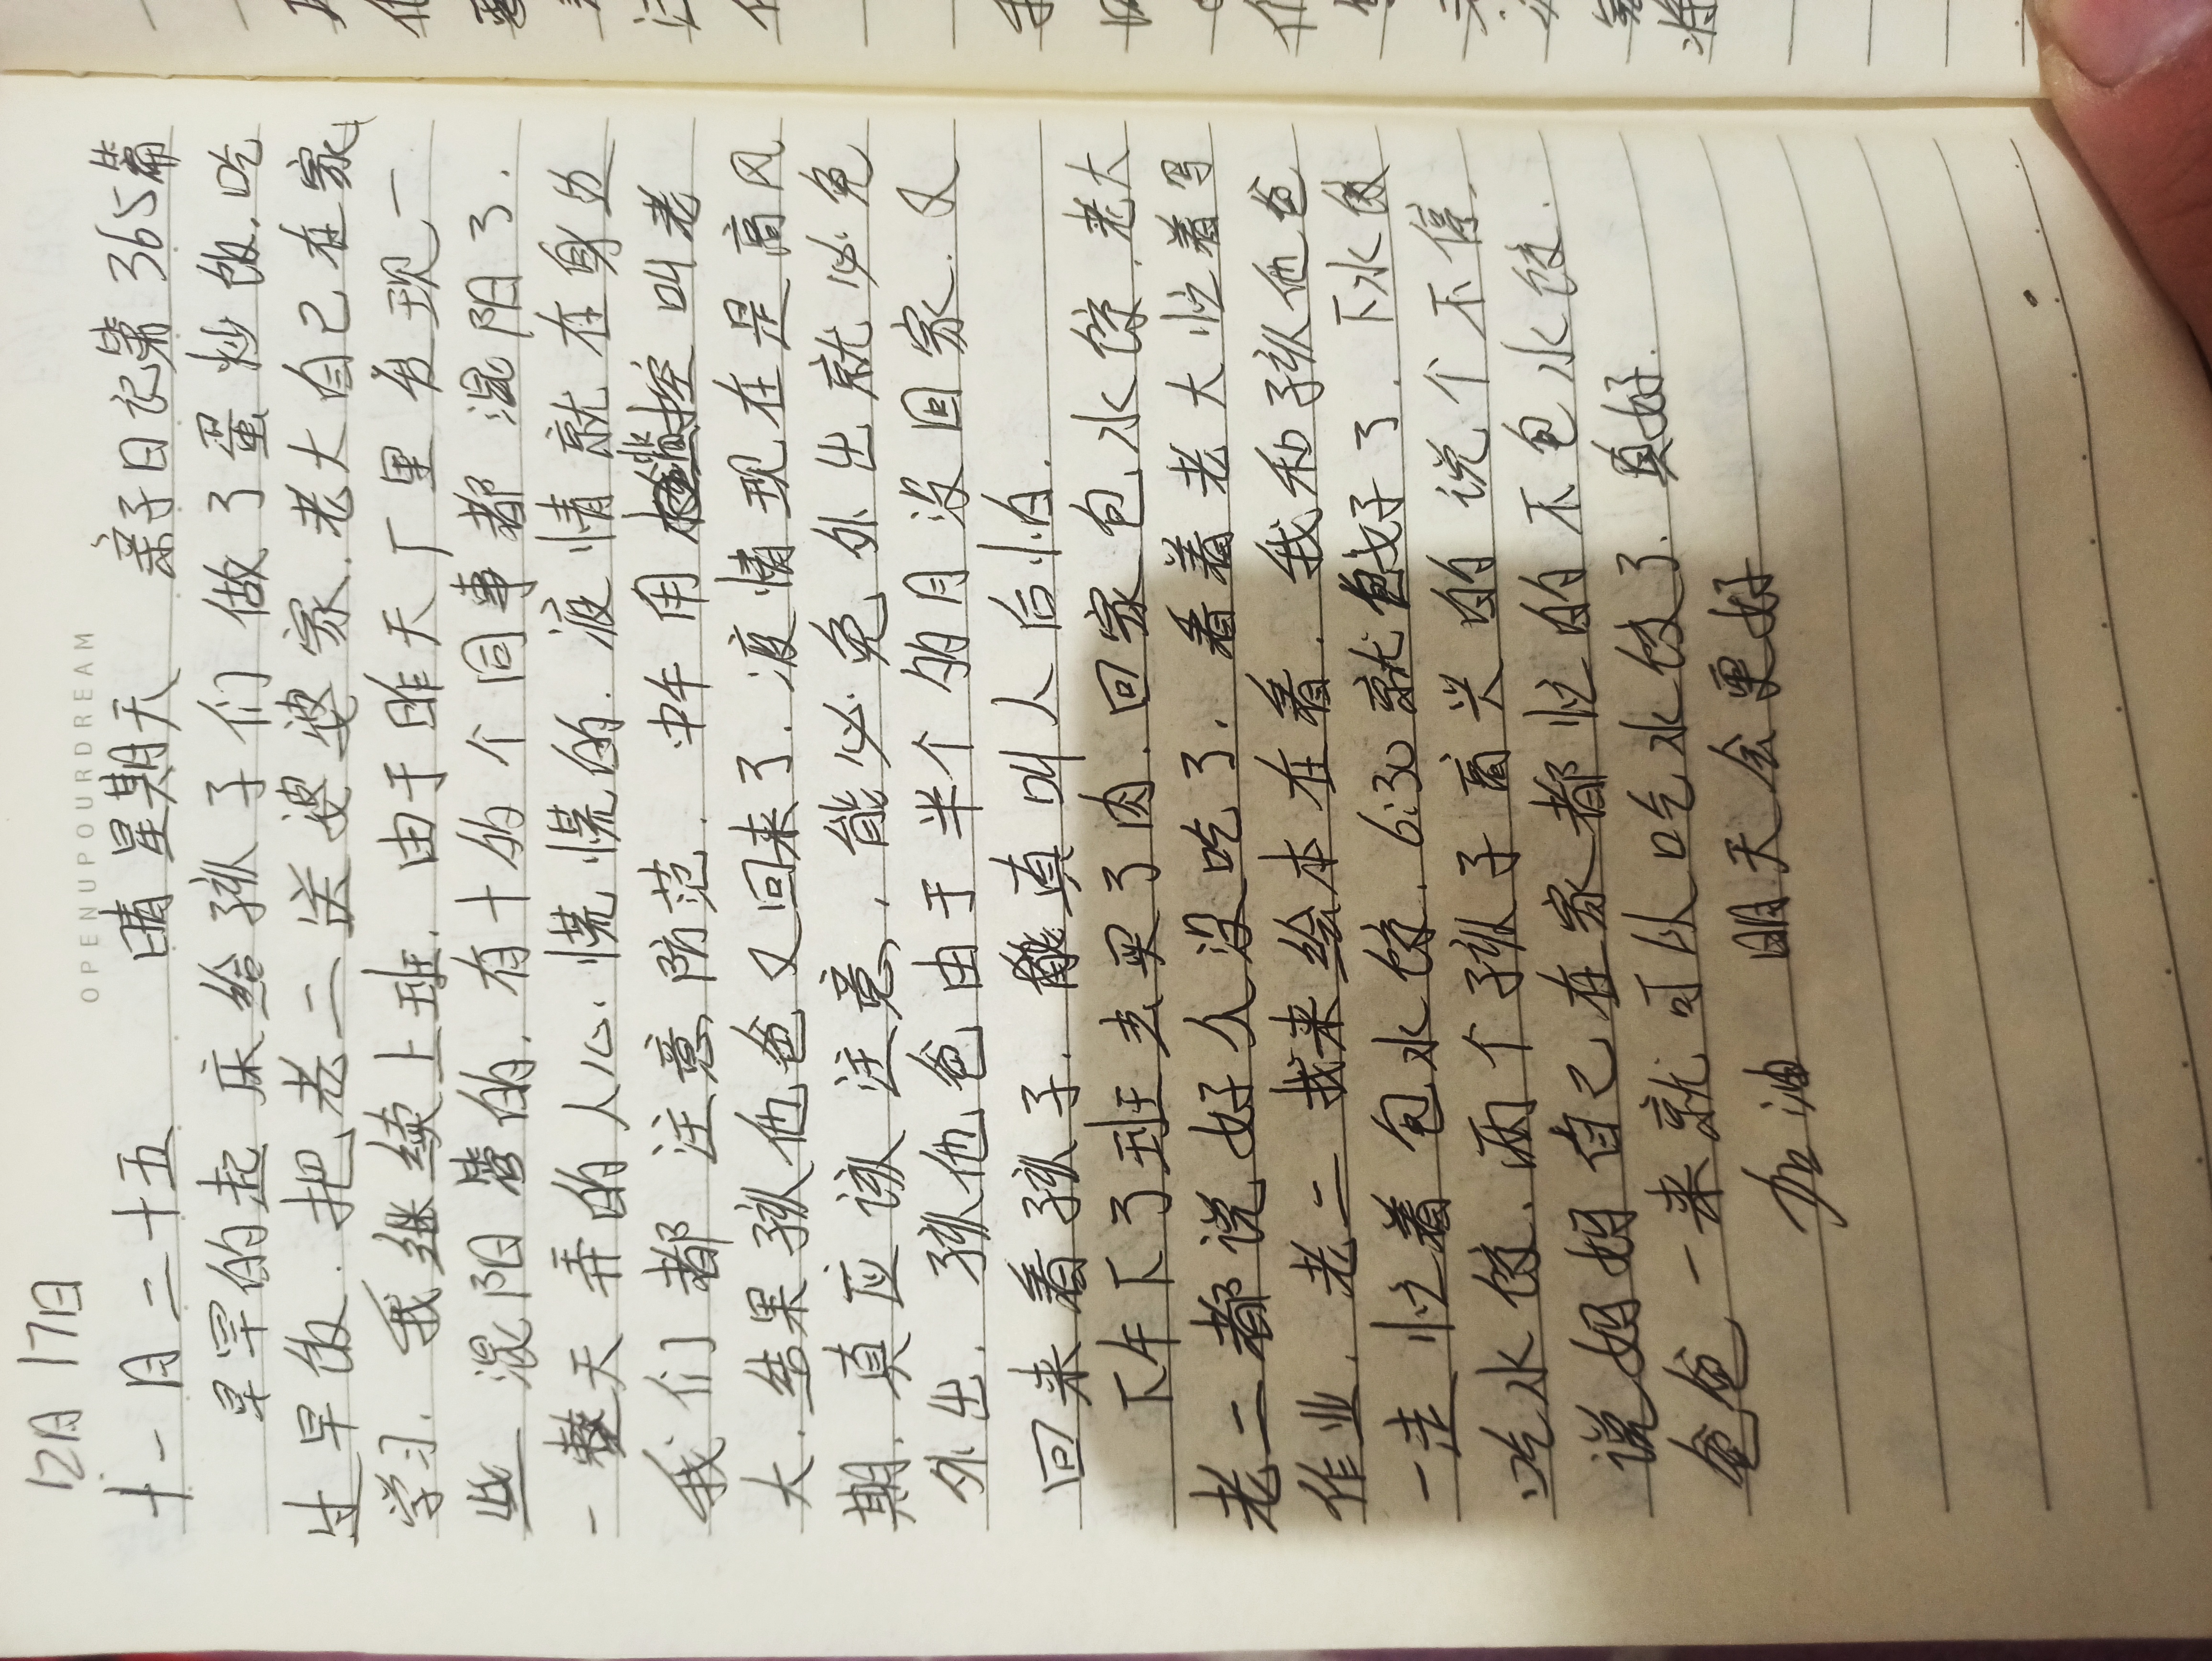 OPENUPOURDREAM
12月17日
十一月二十五 晴 星期天 亲子日记第365篇
早早的起床给孩子们做了蛋炒饭.吃
过早饭.把老二送婆婆家.老大自己在家
学习.我继续上班.由于昨天厂里发现一
些混阳管的.有十多个同事都混阳了.
一整天弄的人心慌慌的.液情就在身边
我们都注意防范.中午用监控叫老
大.结果孩他爸又回来了.液情现在是高风
期.真应该注意,能必免外出就必免
外出.孩他爸由于半个多月没回家.又
回来看孩子.真叫人后怕.
下午下了班去买了肉.回家包水饺.老大
老二都说好久没吃了.看着老大忙着写
作业.老二找来绘本在看.我和孩他爸
一走忙着包水饺.6:30就包好了.下水饺
吃水饺.两个孩子高兴的说个不停.
说妈妈自己在家都忙的不包水饺.
爸爸一来就可以吃水饺了.真好.
加油 明天会更好